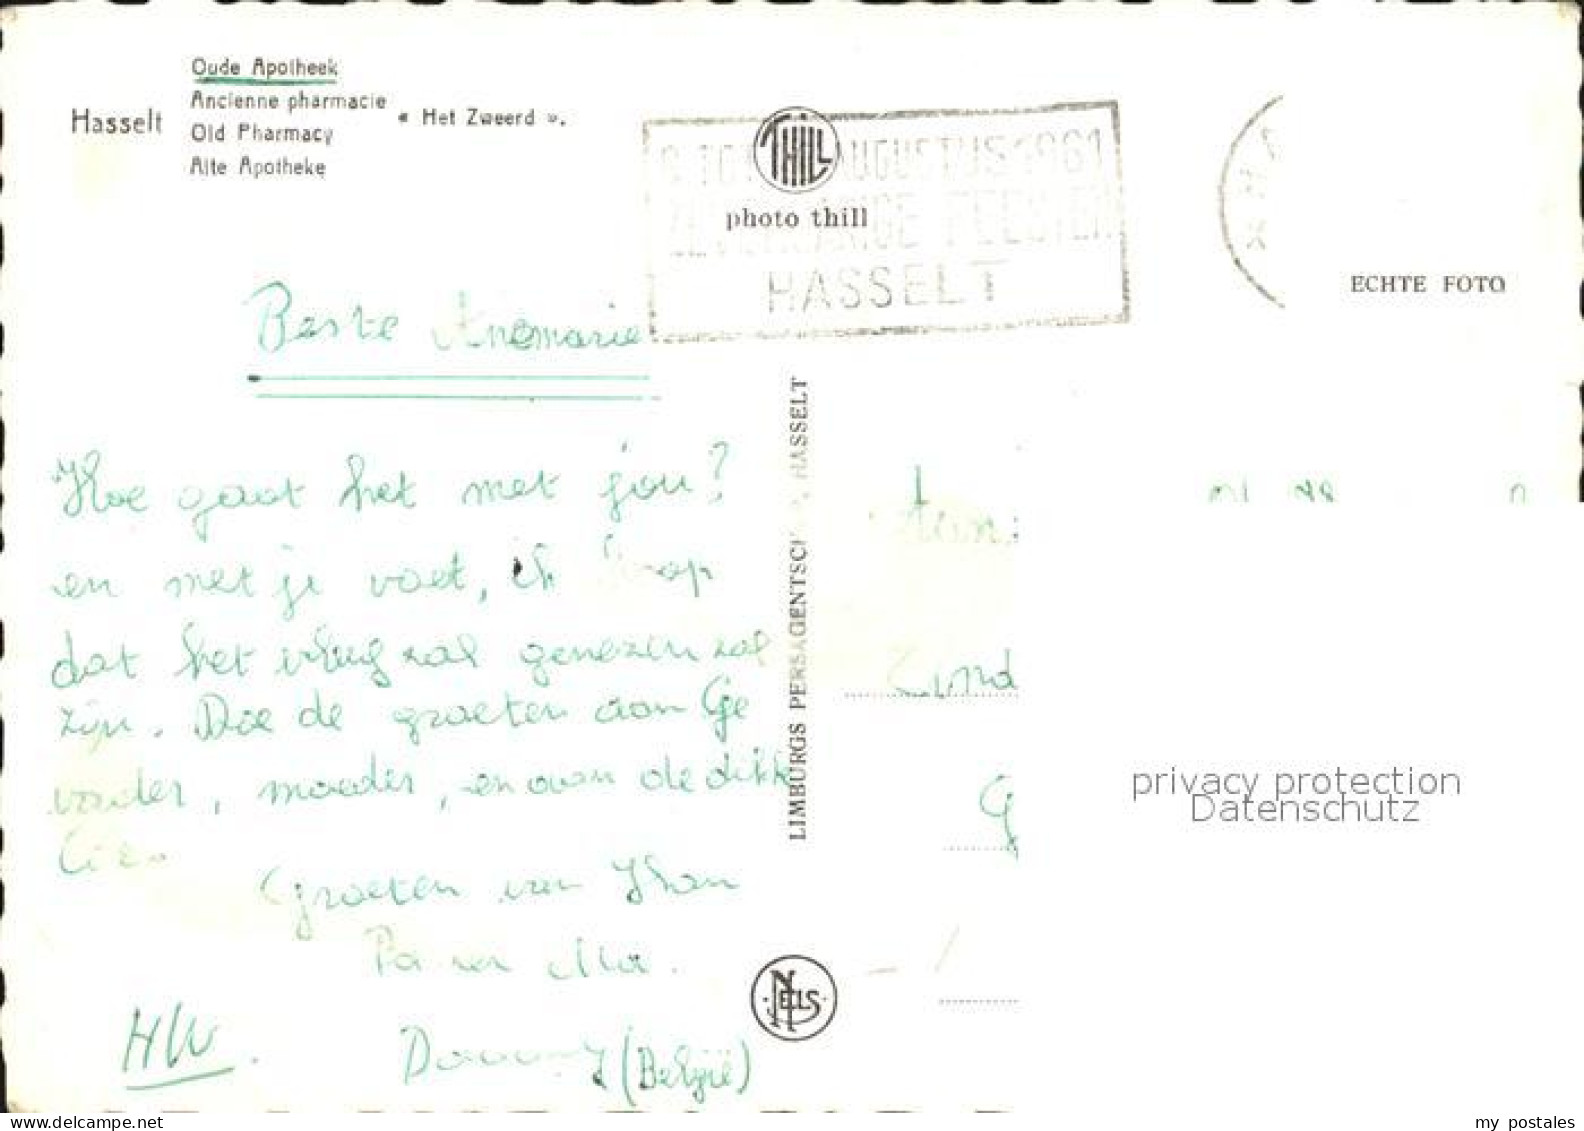 Oude Apotheek
Ancienne pharmacie
Hasselt « Het Zweerd ».
Old Pharmacy
Alte Apotheke
THILL
photo thill
AUGUSTUS 1961
HASSELT
ECHTE FOTO
Beste Anemarie
Hoe gaat het met jou?
en met je voet, ik hoop
dat het vlug zal genezen zal
zijn. Doe de groeten aan Gje
vader, moeder, en aan de dikke
Groeten van Han
Pa en Ma.
HW.
(België)
LIMBURGS PERSAGENTSCHAP, HASSELT
NELS
privacy protection
Datenschutz
my postales